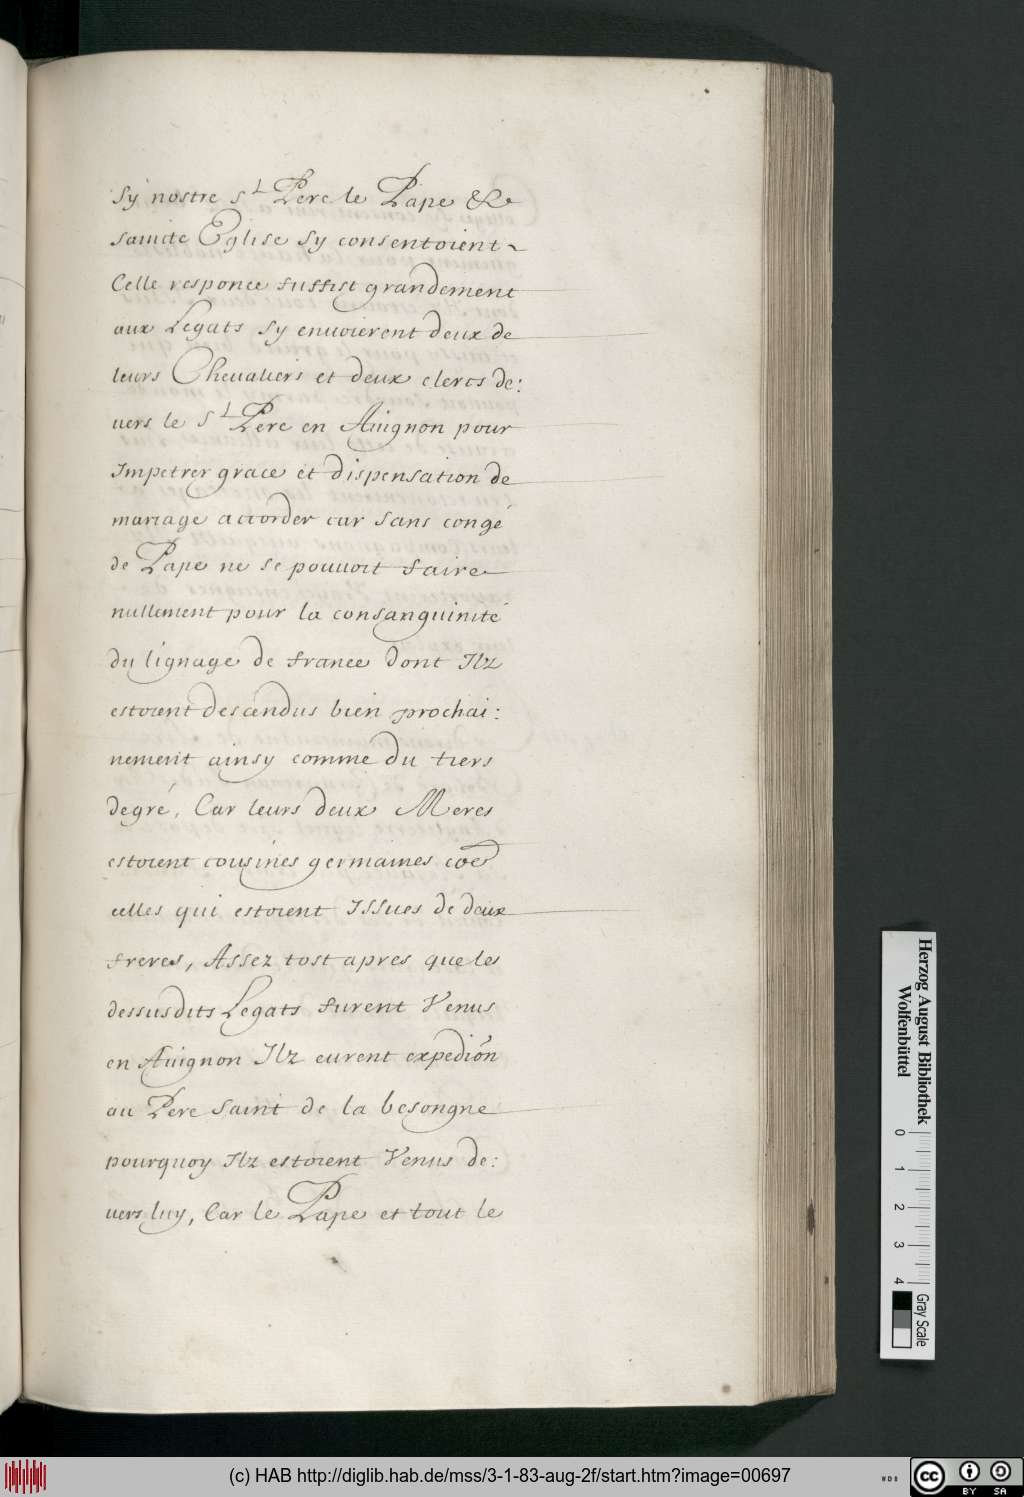 Sy nostre St Pere le Pape & la
saincte Eglise sy consentoient
Celle responce suffist grandement
aux Legats sy enuoierent deux de
leurs Cheualiers et deux clercs de:
uers le St Pere en Auignon pour
Impetrer grace et dispensation de
mariage accorder car sans congé
de Pape ne se pouuoit faire
nullement pour la consanguinité
du lignage de france dont Ilz
estoient descendus bien prochai:
nement ainsy comme du tiers
degré, Car leurs deux Meres
estoient cousines germaines coẽ
celles qui estoient Issues de deux
freres, Assez tost apres que les
dessusdits Legats furent Venus
en Auignon Ilz eurent expediõn
au Pere saint de la besongne
pourquoy Ilz estoient Venus de:
uers luy, Car le Pape et tout le
Herzog August Bibliothek
Wolfenbüttel
0 1 2 3 4
Gray Scale
(c) HAB http://diglib.hab.de/mss/3-1-83-aug-2f/start.htm?image=00697
WDB
cc BY SA